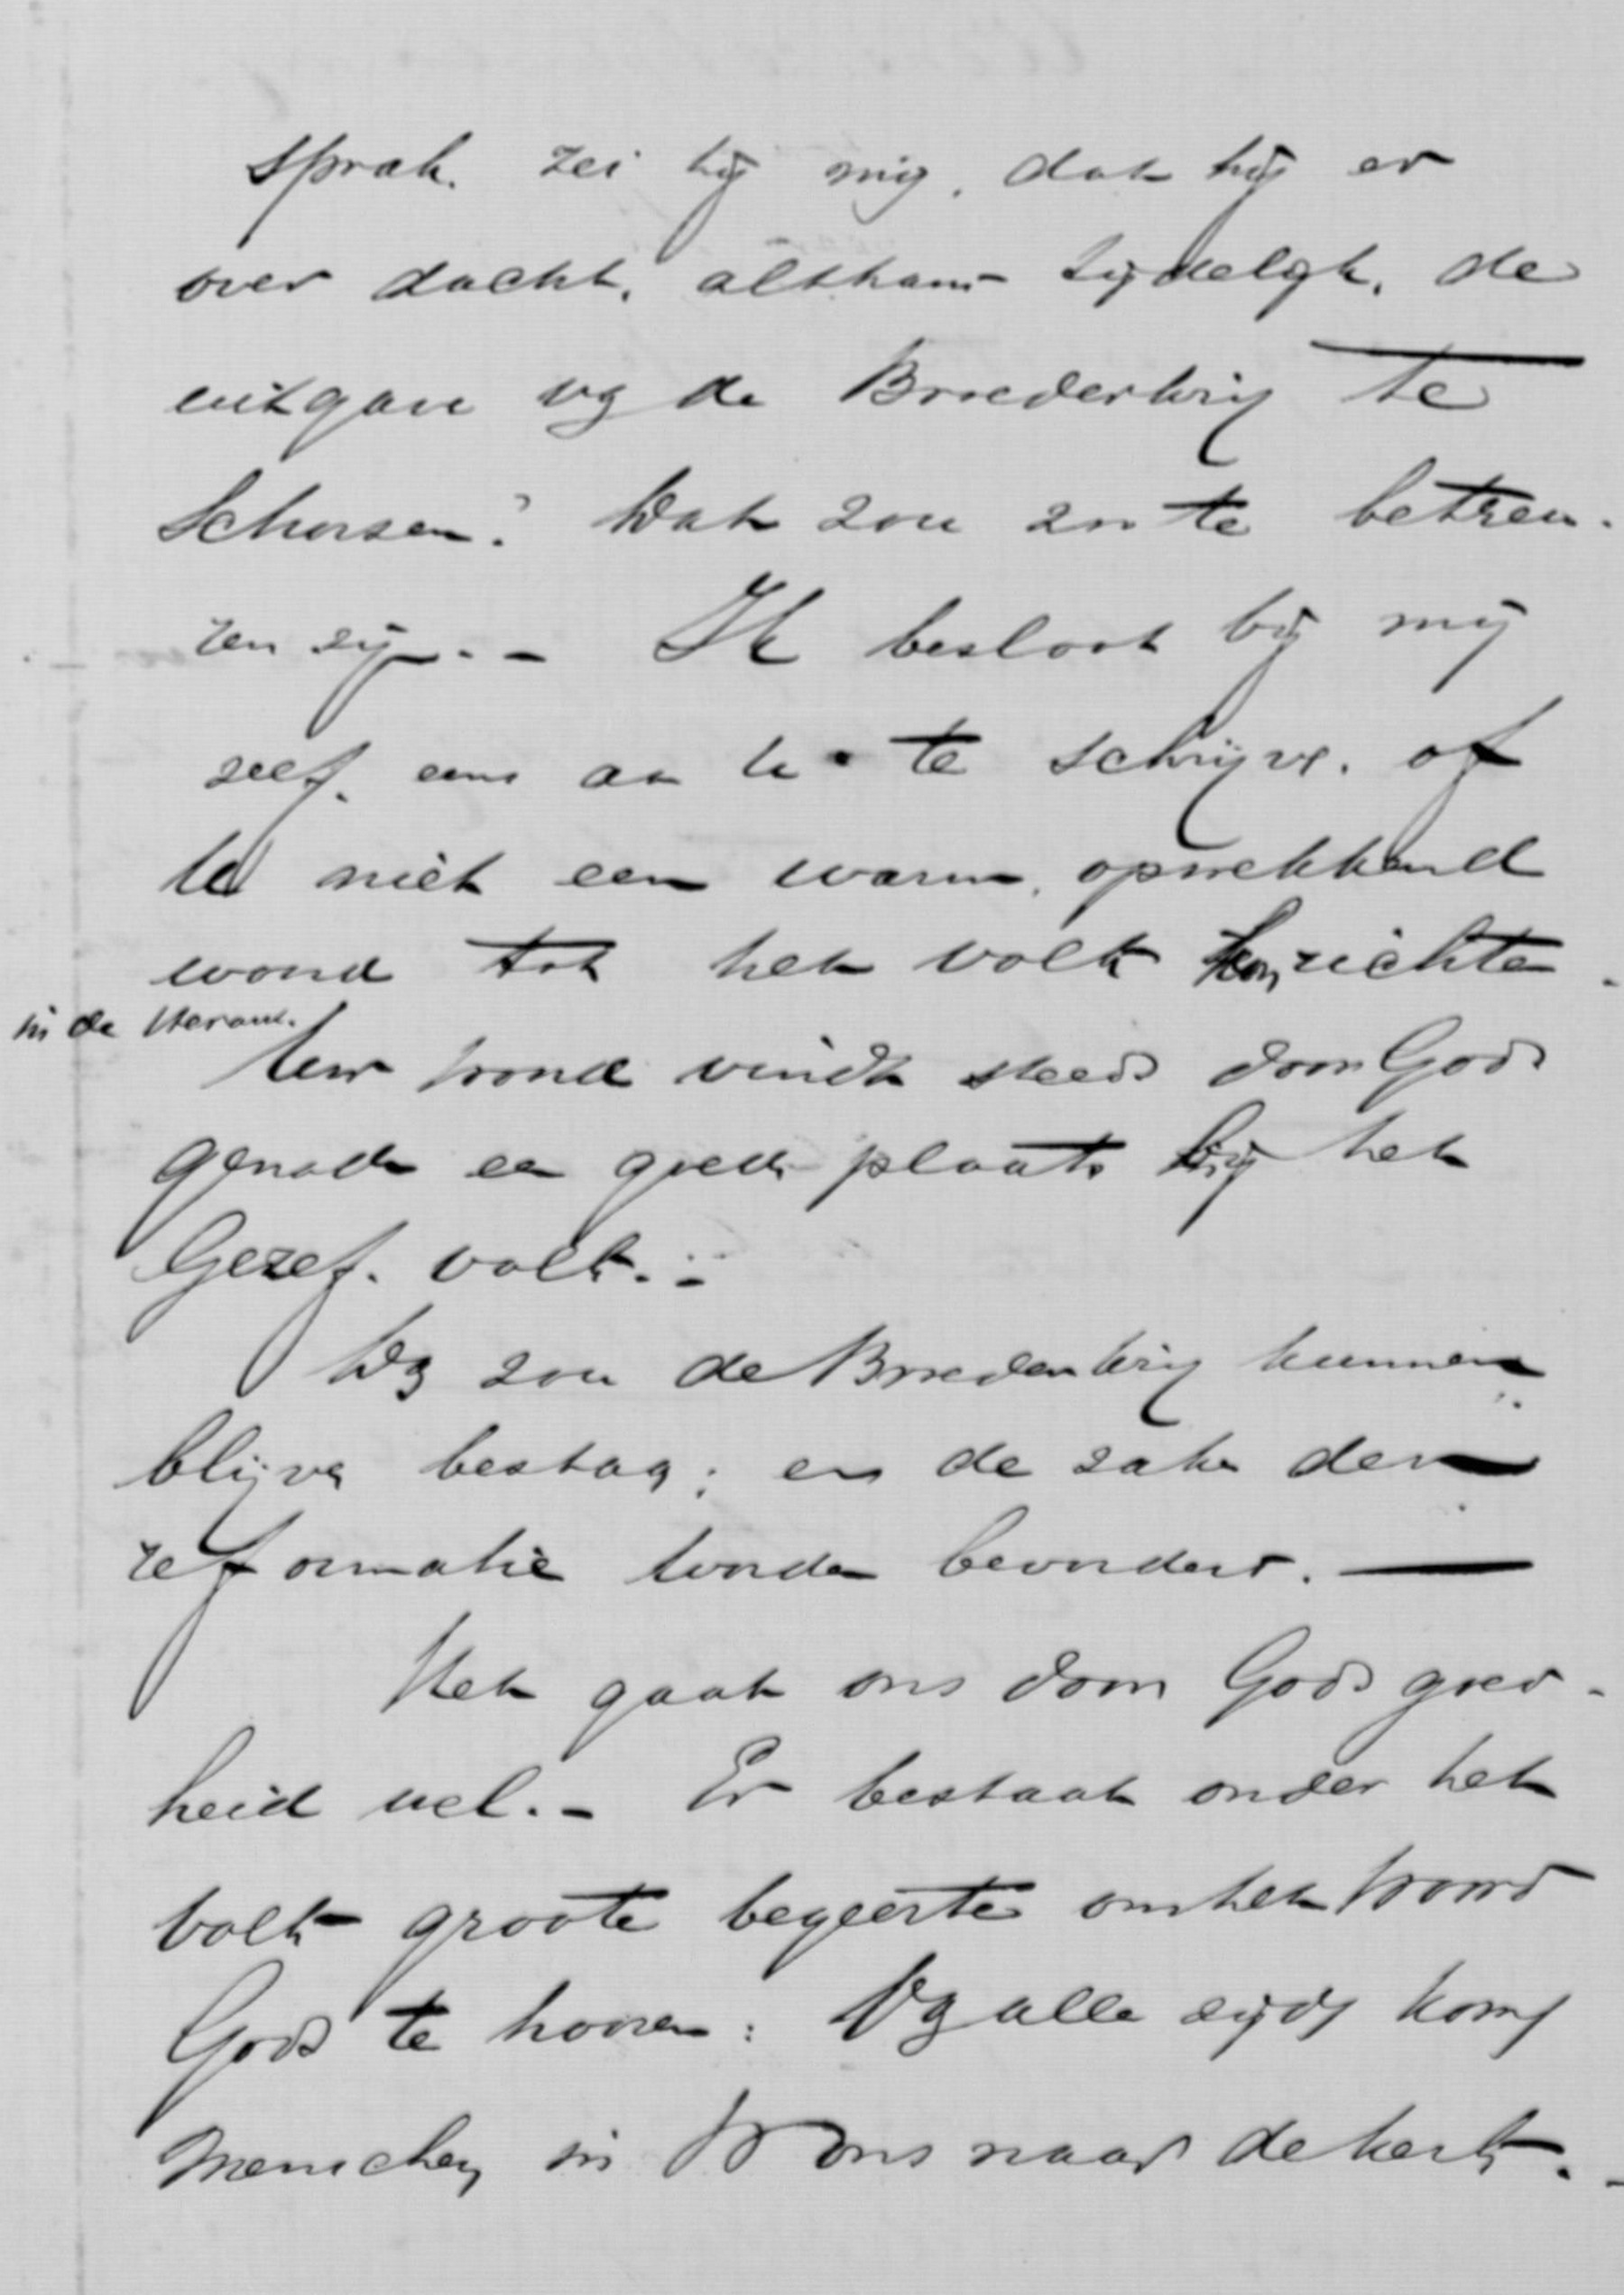 sprak. zei hij mij, dat hij er
over dacht, althans tijdelijk, de
uitgave van de Broederkring te
Schorsen. Wat zou zn te betreu-
ren zijn. – Ik besloot bij mij
zelf, eens aan U te schrijven. of
U niet een warm, opwekkend
woord tot het volk kon richten.
in de Heraut.
Uw woord vindt steeds door Gods
genade een goede plaats bij het
Geref. volk. –
Dan zou de Broederkring kunnen
blijven bestaan; en de zake der
reformatie worden bevorderd. —
Het gaat ons door Gods goed-
heid wel. – Er bestaat onder het
volk groote begeerte om het Woord
Gods te hooren: Van alle zijden komen
Menschen in Wons naar de kerk. –